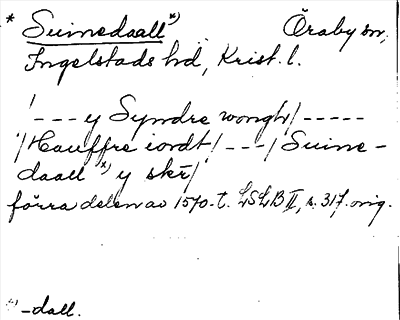 * Suinedaall*) Öraby sn,
Ingelstads hd, Krist. l.
/ - - - y Syndre wongh/ - - - - -
/Hauffre iordt/ - - -/ Suine-
daall *) y skr/
förra delen av 1570-t. LSLB II, s. 317. orig.
*) -dall.